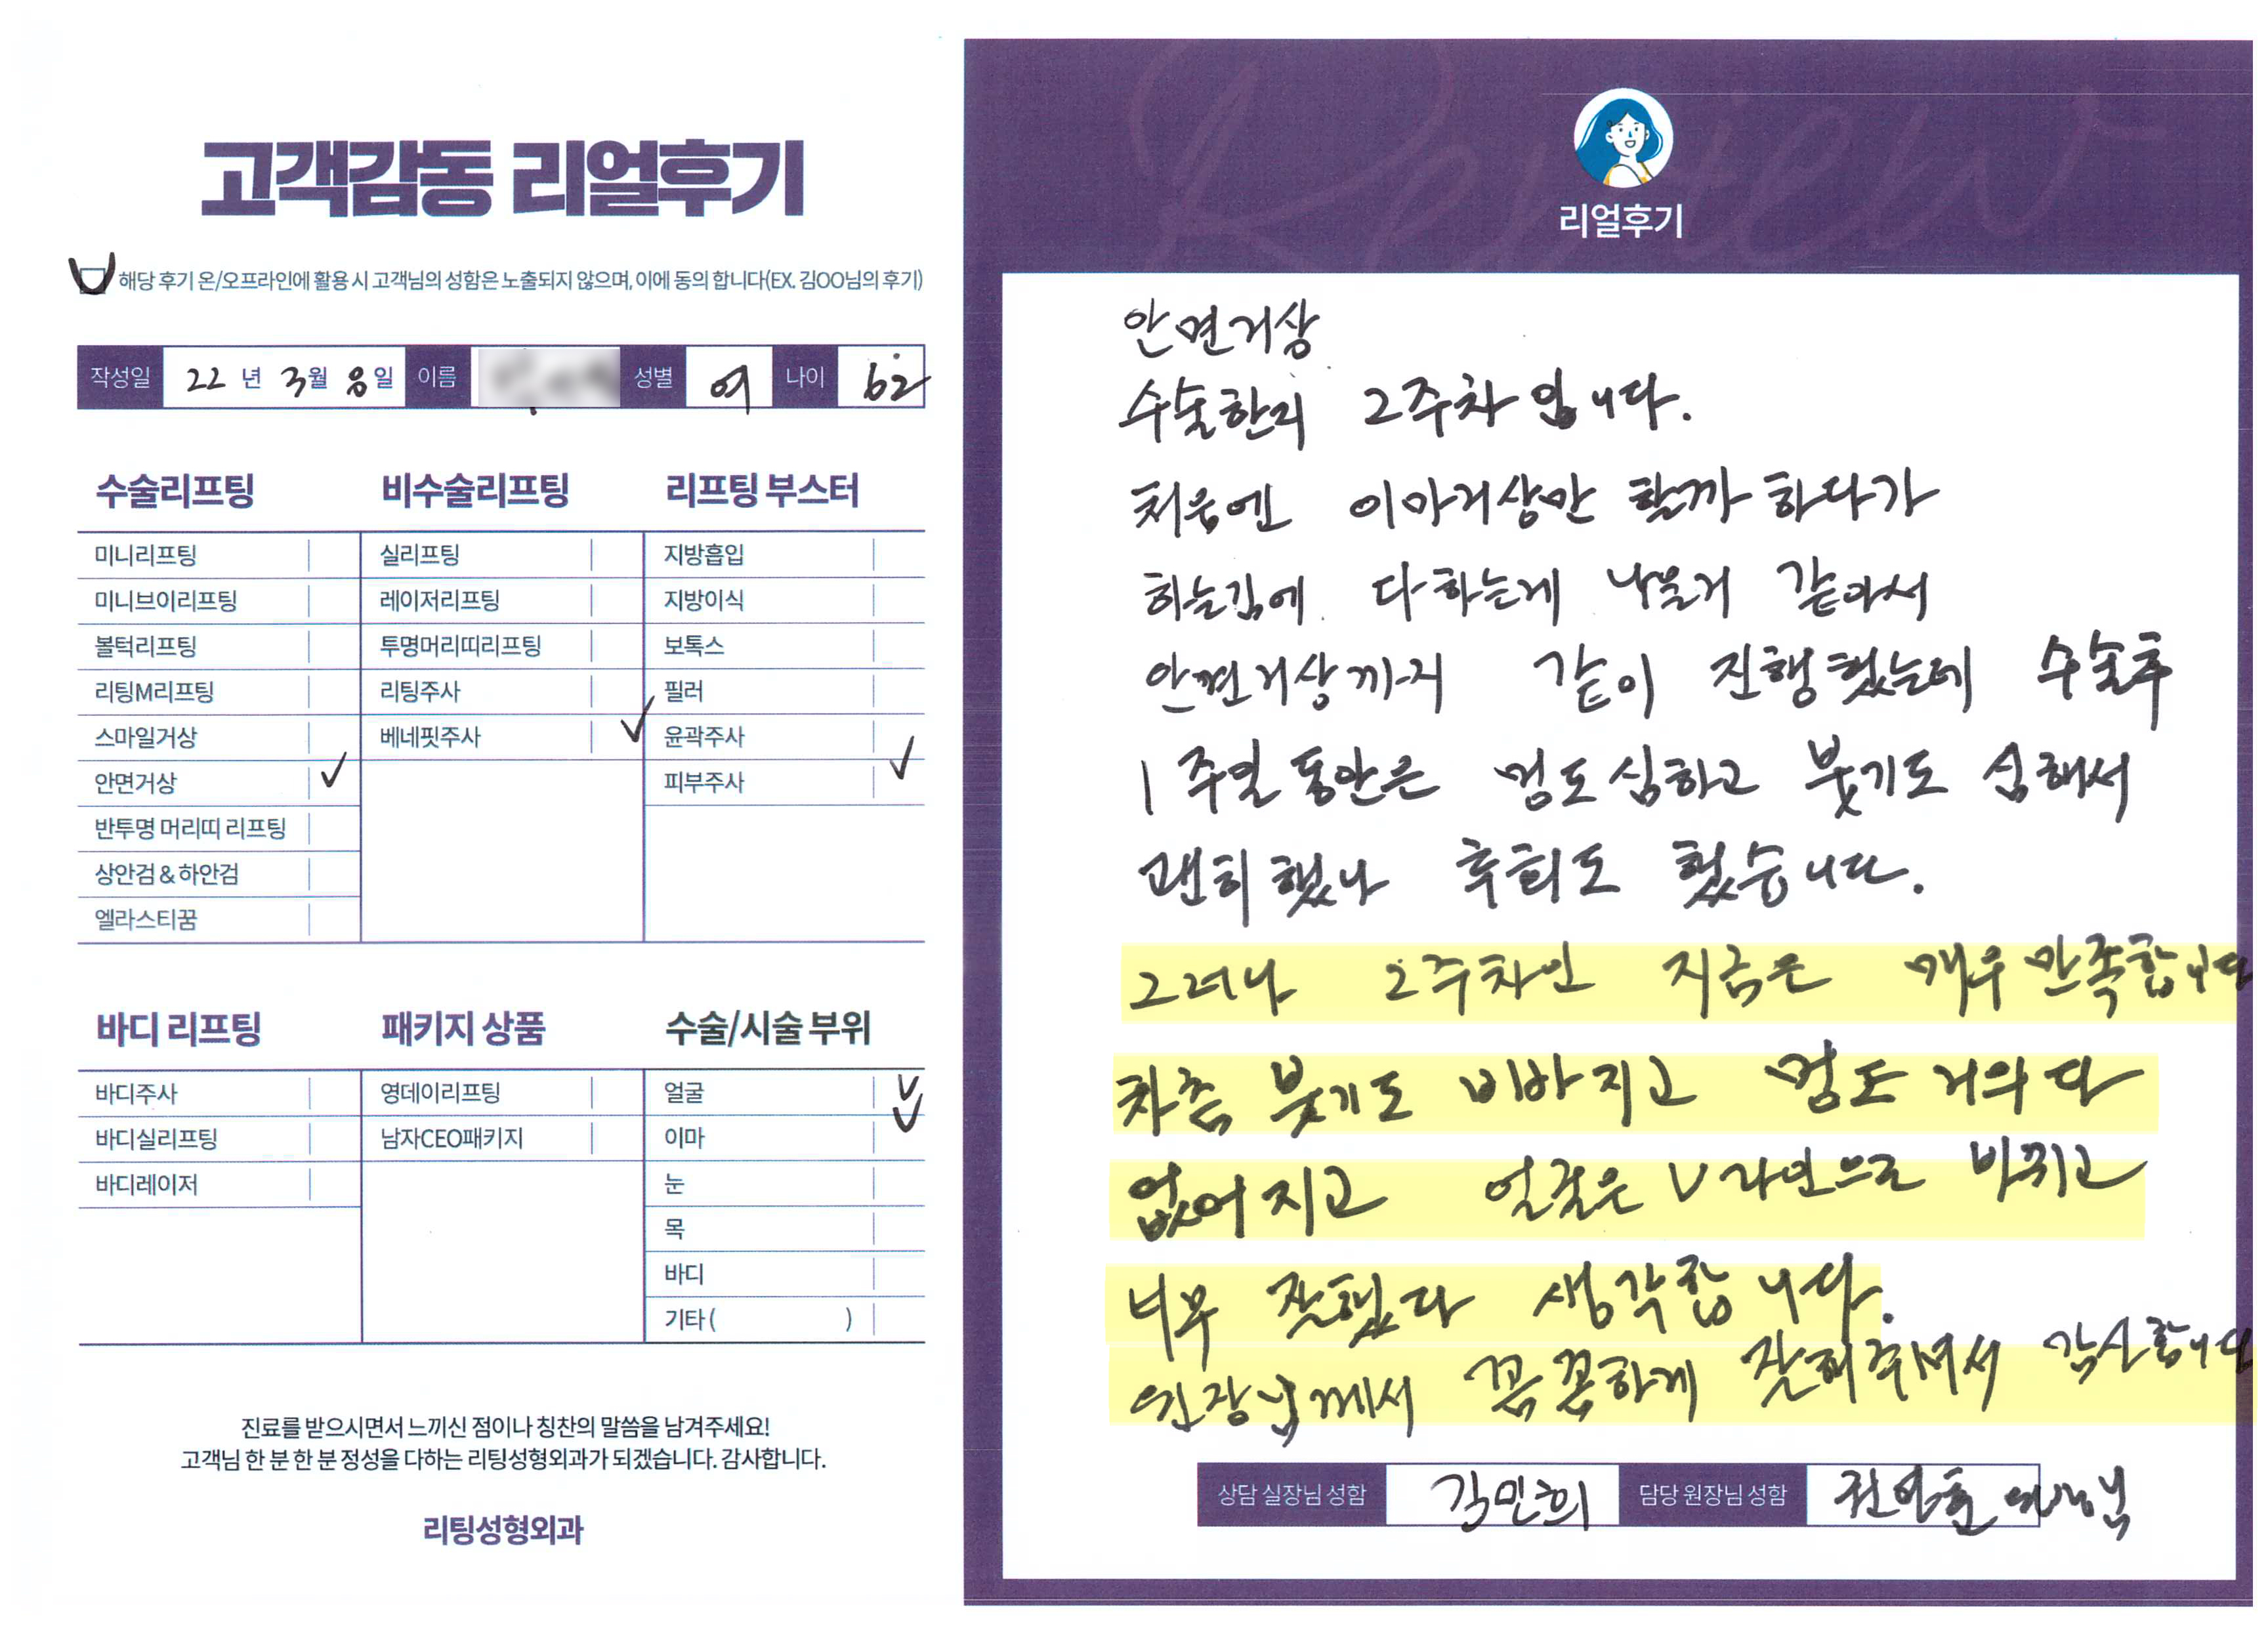 고객감동 리얼후기
해당 후기 온/오프라인에 활용 시 고객님의 성함은 노출되지 않으며, 이에 동의 합니다(EX. 김OO님의 후기)
작성일 22 년 3월 8일 이름 성별 여 나이 62
수술리프팅 비수술리프팅 리프팅 부스터
미니리프팅 실리프팅 지방흡입
미니브이리프팅 레이저리프팅 지방이식
볼턱리프팅 투명머리띠리프팅 보톡스
리팅M리프팅 리팅주사 필러
스마일거상 베네핏주사 윤곽주사
안면거상 피부주사
반투명 머리띠 리프팅
상안검 & 하안검
엘라스티꿈
바디 리프팅 패키지 상품 수술/시술 부위
바디주사 영데이리프팅 얼굴
바디실리프팅 남자CEO패키지 이마
바디레이저 눈
목
바디
기타 ( )
진료를 받으시면서 느끼신 점이나 칭찬의 말씀을 남겨주세요!
고객님 한 분 한 분 정성을 다하는 리팅성형외과가 되겠습니다. 감사합니다.
리팅성형외과
Review
리얼후기
안면거상
수술한지 2주차 입니다.
처음엔 이마거상만 할까 하다가
하는김에 다하는게 나을거 같아서
안면거상까지 같이 진행했는데 수술후
1주일 동안은 멍도 심하고 붓기도 심해서
괜히했나 후회도 했습니다.
그러나 2주차인 지금은 매우 만족합니다
차츰 붓기도 빠지고 멍도 거의 다
없어지고 얼굴은 V라인으로 바뀌고
너무 잘했다 생각합니다.
원장님께서 꼼꼼하게 잘해주셔서 감사합니다
상담 실장님 성함 김민희 담당 원장님 성함 원장님